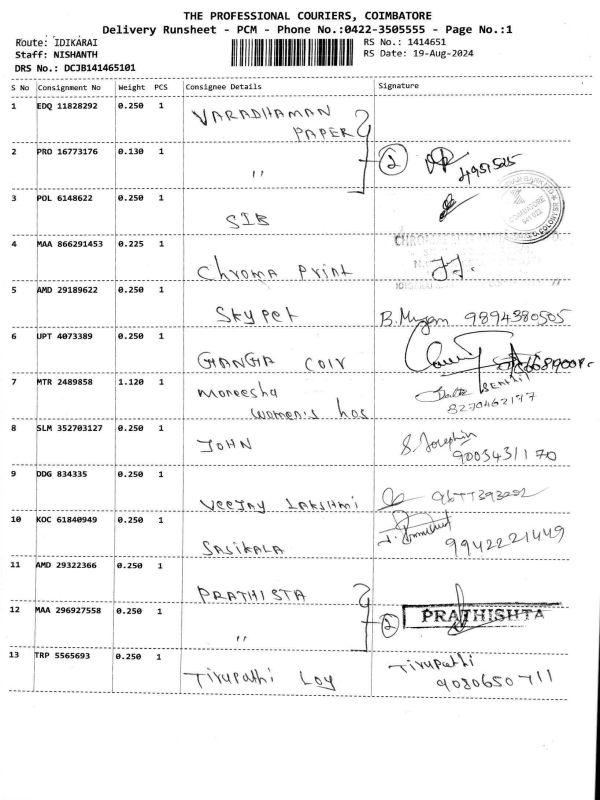 THE PROFESSIONAL COURIERS, COIMBATORE
Delivery Runsheet - PCM - Phone No.:0422-3505555 - Page No.:1
Route: IDIKARAI
RS No.: 1414651
Staff: NISHANTH
RS Date: 19-Aug-2024
DRS No.: DCJB141465101
S No Consignment No Weight PCS Consignee Details Signature
1 EDQ 11828292 0.250 1 VARADHAMAN
PAPER
2 PRO 16773176 0.130 1 2
〃 4951525
3 POL 6148622 0.250 1
SIB
4 MAA 866291453 0.225 1
Chroma Print
5 AMD 29189622 0.250 1
Skypet 9894380505
6 UPT 4073389 0.250 1
GANGA COIR
7 MTR 2489858 1.120 1 moneesha
women's hos 8270462197
8 SLM 352703127 0.250 1
JOHN S. Josephin
9003431170
9 DDG 834335 0.250 1
VEEJAY LAKSHMI 9677393202
10 KOC 61840949 0.250 1
SASIKALA 9942221449
11 AMD 29322366 0.250 1
PRATHISTA
12 MAA 296927558 0.250 1 2 PRATHISHTA
〃
13 TRP 5565693 0.250 1 Tirupathi
Tirupathi Loy 9080650711